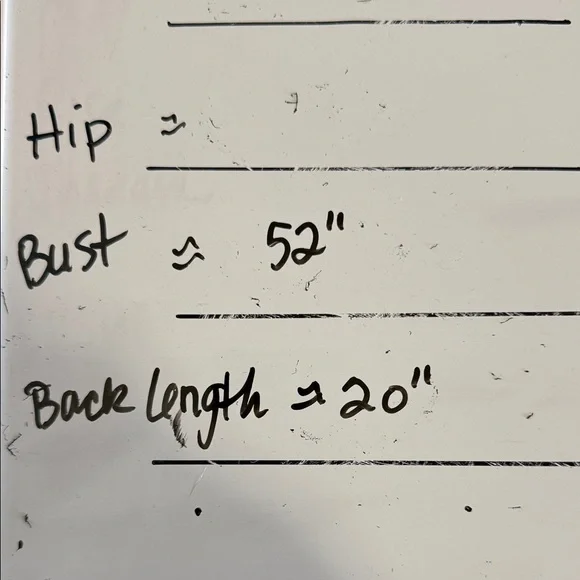 Hip ≈
Bust ≈ 52"
Back length ≈ 20"